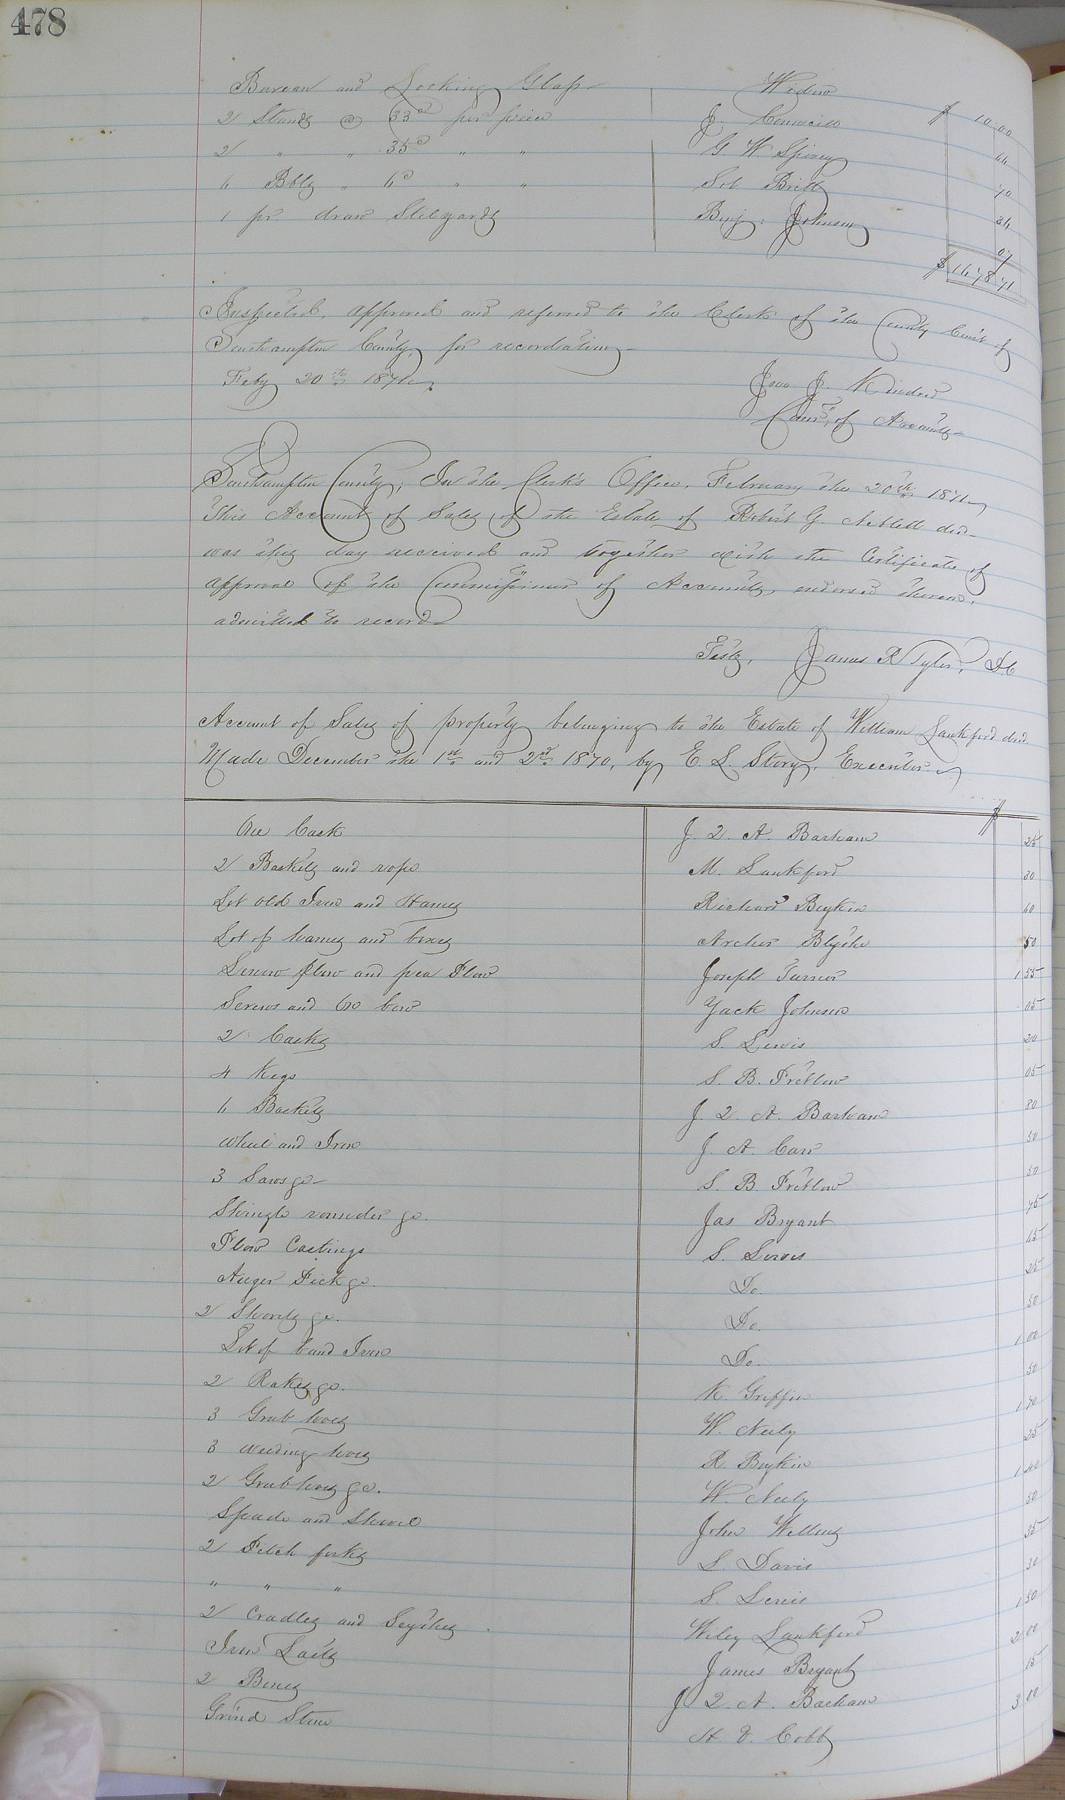 478
Bureau and Looking Glass Widow $ 10.00
2 Stands @ 33c per piece J. Councill 66
2 " " 35c " " G W Spivey 70
6 Bbls " 6c " " Sol Britt 36
1 pr draw Stilyards Benj: Johnson 07
$ 1678.71
Inspected, approved and referred to the Clerk of the County Court of
Southampton County, for recordation
Feby 20th 1871.
Jno J. Kindred
Comr. of Accounts
Southampton County, In the Clerk's Office, February the 20th 1871
This Account of Sales of the Estate of Robert G. Neblett decd
was this day received and together with the Certificate of
approval of the Commissioner of Accounts, endorsed thereon,
admitted to record
Teste, James R Tyler, D.C
Account of Sales of property belonging to the Estate of William Lankford decd
Made December the 1st and 2nd 1870, by E. L. Story, Executor
$
One Cask J. Q. A. Barham 25
2 Baskets and rope M. Lankford 30
Lot old Iron and Hames Richard Boykin 60
Lot of hames and boxes Archer Blythe 50
Screw plow and pea Plow Joseph Turner 1 55
Screws and Ox bow Jack Johnson 05
2 Casks S. Lewis 20
4 Kegs S. B. Pretlow 05
6 Baskets J. Q. A. Barham 80
Wheel and Iron J. A. Carr 50
3 Saws &c S. B. Pretlow 50
Shingle &c. Jas Bryant 75
Plow Castings S. Lewis 45
Auger Pick &c. Do. 25
2 Shovels &c. Do. 50
Lot of band Iron Do. 1 00
2 Rakes &c. K. Griffin 50
3 Grub hoes W. Neely 1 80
3 weeding hoes R. Boykin 25
2 Grub hoes &c. W. Neely 1 40
Spade and Shovel John Willing 50
2 Pitch forks S. Davis 35
" " " S. Lewis 30
2 Cradles and Scythes Wiley Lankford 1 50
Iron James Bryant 2 00
2 J. Q. A. Barham 15
Grind Stone A. V. Cobb 3 00